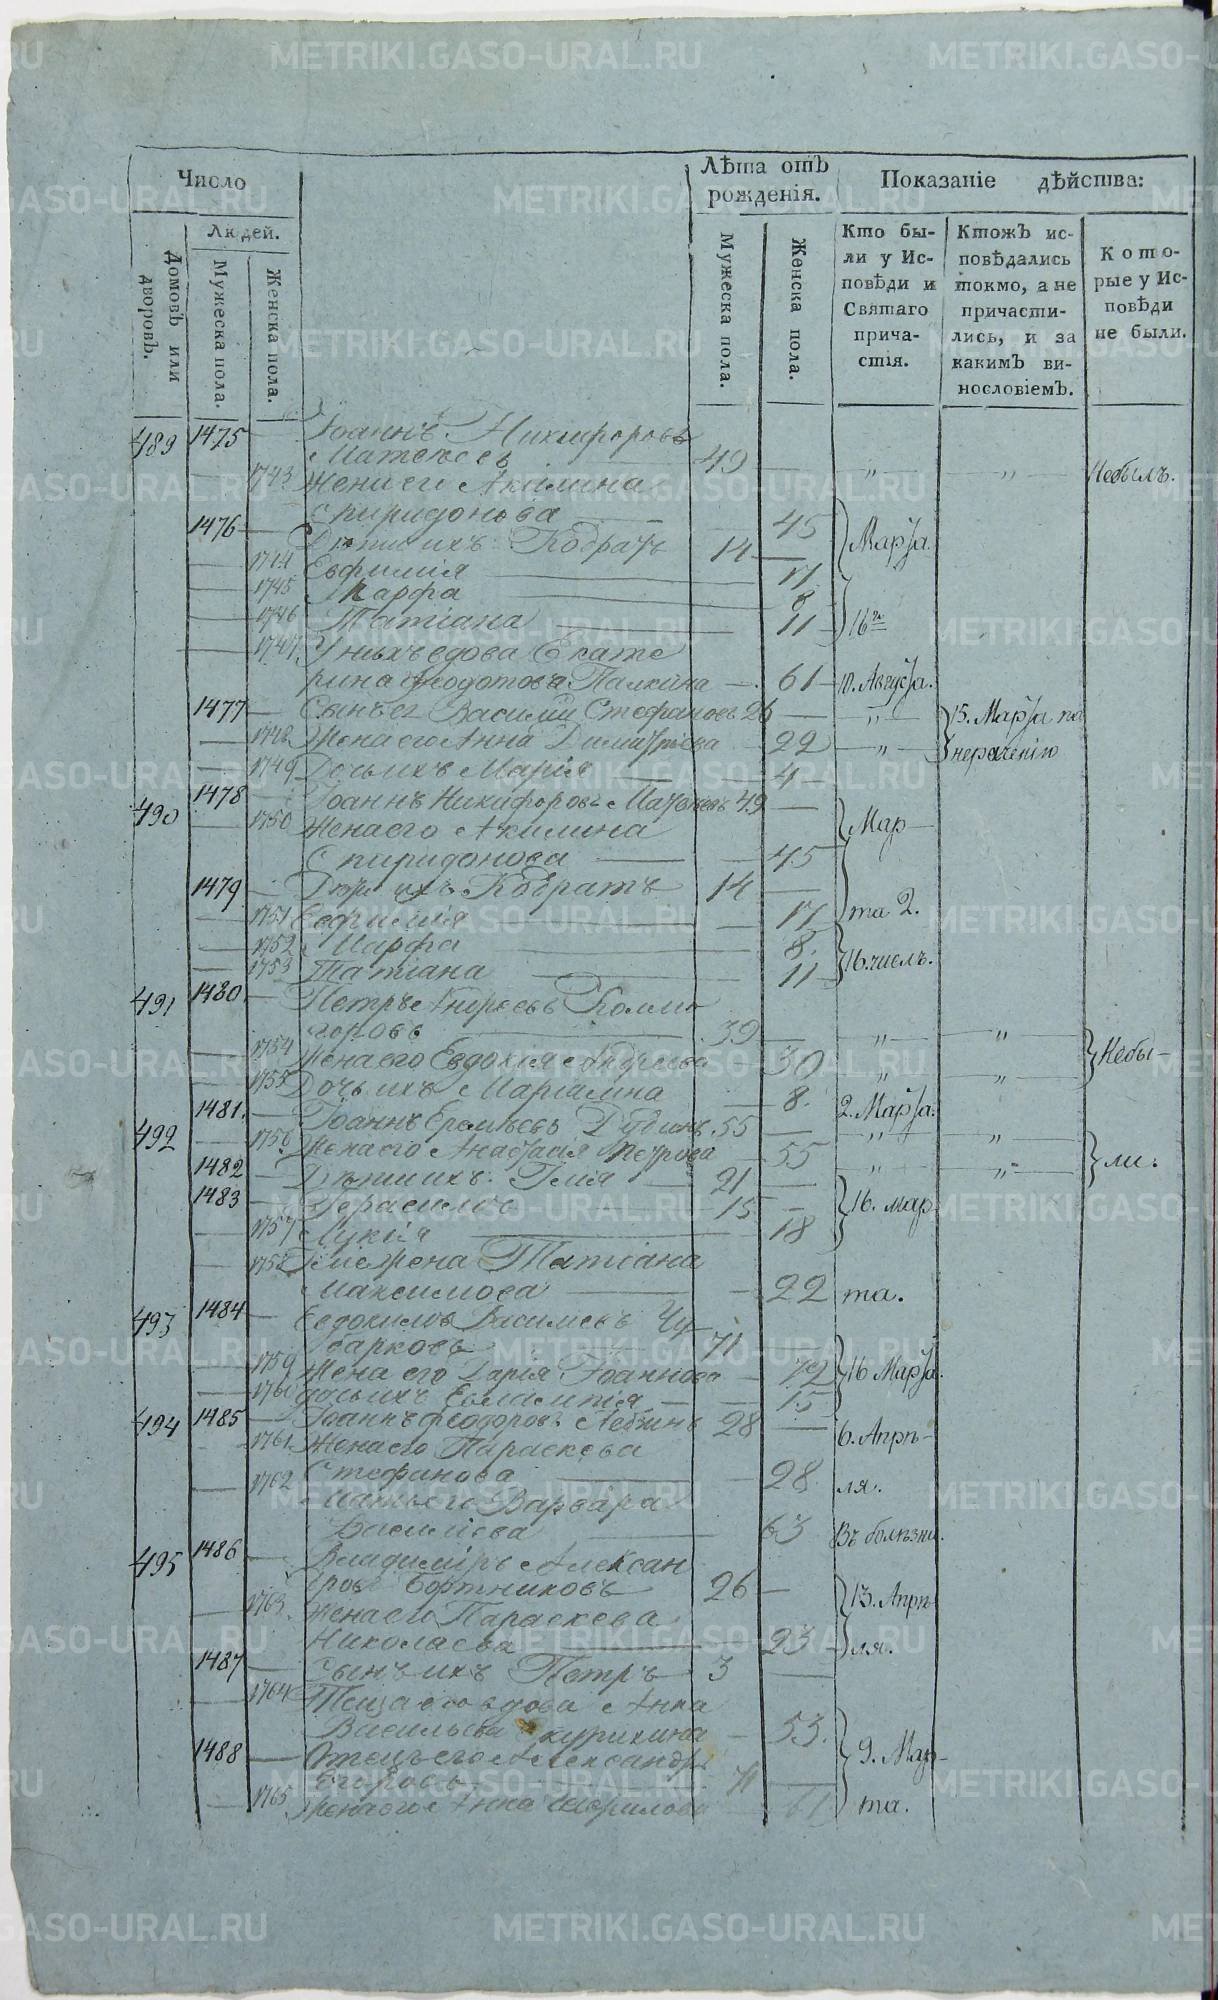 Число
Людей.
Домовъ или дворовъ.
Мужеска пола.
Женска пола.
Лѣта отъ рожденія.
Мужеска пола.
Женска пола.
Показаніе дѣйства:
Кто бы-
ли у Ис-
повѣди и
Святаго
прича-
стія.
Ктожъ ис-
повѣдались
токмо, а не
причасти-
лись, и за
какимъ ви-
нословіемъ.
Кото-
рые у Ис-
повѣди
не были.
489 1475 — Іоаннъ Никифоровъ
Матвеевъ 49 — „ — „ — Небылъ.
— 1743 Жена его Акилина
Спиридонова — 45
1476 — Дѣти ихъ: Кодратъ 14 — Марта
— 1744 Евфимія — 17
— 1745 Марфа — 8
— 1746 Татіана — 11 — 16го
— 1747 У нихъ вдова Екате
рина Феодотова Палкина — 61 — 10. Августа.
1477 — Сынъ ея Василій Стефановъ 26 — „ — 15. Марта по
— 1748 Жена его Анна Димитріева — 22 — „ — нераченію
— 1749 Дочь ихъ Марія — 4
490 1478 — Іоаннъ Никифоровъ Матвеевъ 49 —
— 1750 Жена его Акилина Мар-
Спиридонова — 45
1479 — Дѣти ихъ Кодратъ 14 —
— 1751 Евфимія — 17 та 2.
— 1752 Марфа — 8.
— 1753 Татіана — 11 — 16. числъ.
491 1480 — Петръ Андреевъ Колмо
горовъ 39 — „ — „
— 1754 Жена его Евдокія — 30 „ — „ Небы-
— 1755 Дочь ихъ Маріамна — 8. 2. Марта.
492 1481. — Іоаннъ Еремѣевъ Дудинъ 55 — „ — „
— 1756 Жена его Анастасія Петрова — 55 — „ — „ ли.
1482 — Дѣти ихъ: Илія 21 —
1483 — Герасимъ 15 — 16. мар
— 1757 Лукія — 18
— 1758 Иліи жена Татіана
Максимова — 22 та.
493 1484 — Евдокимъ Васильевъ Чу-
барковъ 71
— 1759 Жена его Дарія Іоаннова — 16 Марта.
— 1760 дочь ихъ Евлампія — 15
494 1485 — Іоаннъ Феодоровъ 28 — 6. Апрѣ-
— 1761 Жена его Параскева
Стефанова — 28 ля.
— 1762 Мать его Варвара
Василіева — 63 Въ болѣзни.
495 1486 — Владиміръ Алексан
дровъ Бортниковъ 26 — 13. Апрѣ
— 1763. Жена его Параскева
Николаева — 23 — ля.
1487 — Сынъ ихъ Петръ 3 —
— 1764 Теща его вдова Анна
Васильева Скурихина — 53.
1488 — Отецъ его Александръ 9. Мар-
Егоровъ 71 —
— 1765 Жена его Анна Гаврилова — 61 та.
METRIKI.GASO-URAL.RU